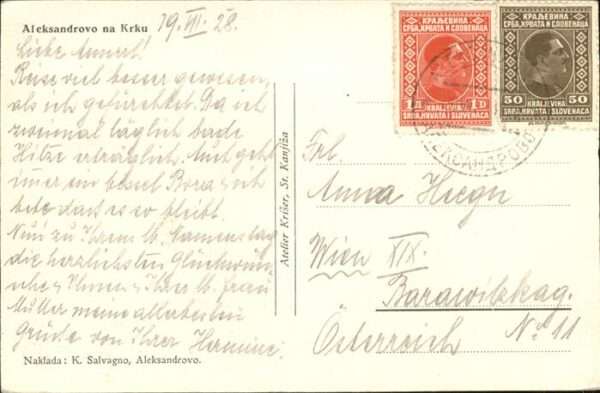 Aleksandrovo na Krku 19. VII. 28.
Liebe Annerl!
Reise viel besser gewesen,
als ich gefürchtet. Da ich
zweimal täglich bade
Hitze erträglich. Auch geht
immer ein bissel Bora u. ich
bete dass es so bleibt.
Nun zu Ihrem lb. Namenstag
die herzlichsten Glückwün-
sche u. Ihnen u. Ihrer lb. Frau
Mutter meine allerbesten
Grüße von Ihrer Hermine.
Naklada: K. Salvagno, Aleksandrovo.
Atelier Krišer, St. Kanjiža
КРАЉЕВИНА
СРБА, ХРВАТА И СЛОВЕНАЦА
1Д 1D
KRALJEVINA
SRBA, HRVATA I SLOVENACA
КРАЉЕВИНА
СРБА, ХРВАТА И СЛОВЕНАЦА
50 50
KRALJEVINA
SRBA, HRVATA I SLOVENACA
АЛЕКСАНДРОВО
Frl.
Anna
Wien XIX.
Barawitzkag.
Österreich No 11